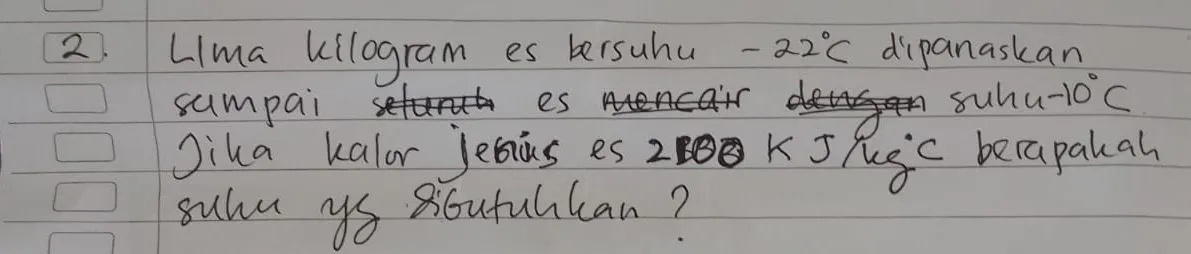 2. Lima kilogram es bersuhu -22°C dipanaskan
sampai es suhu -10°C
Jika kalor jenis es 2100 KJ/kg°C berapakah
suhu yg dibutuhkan?